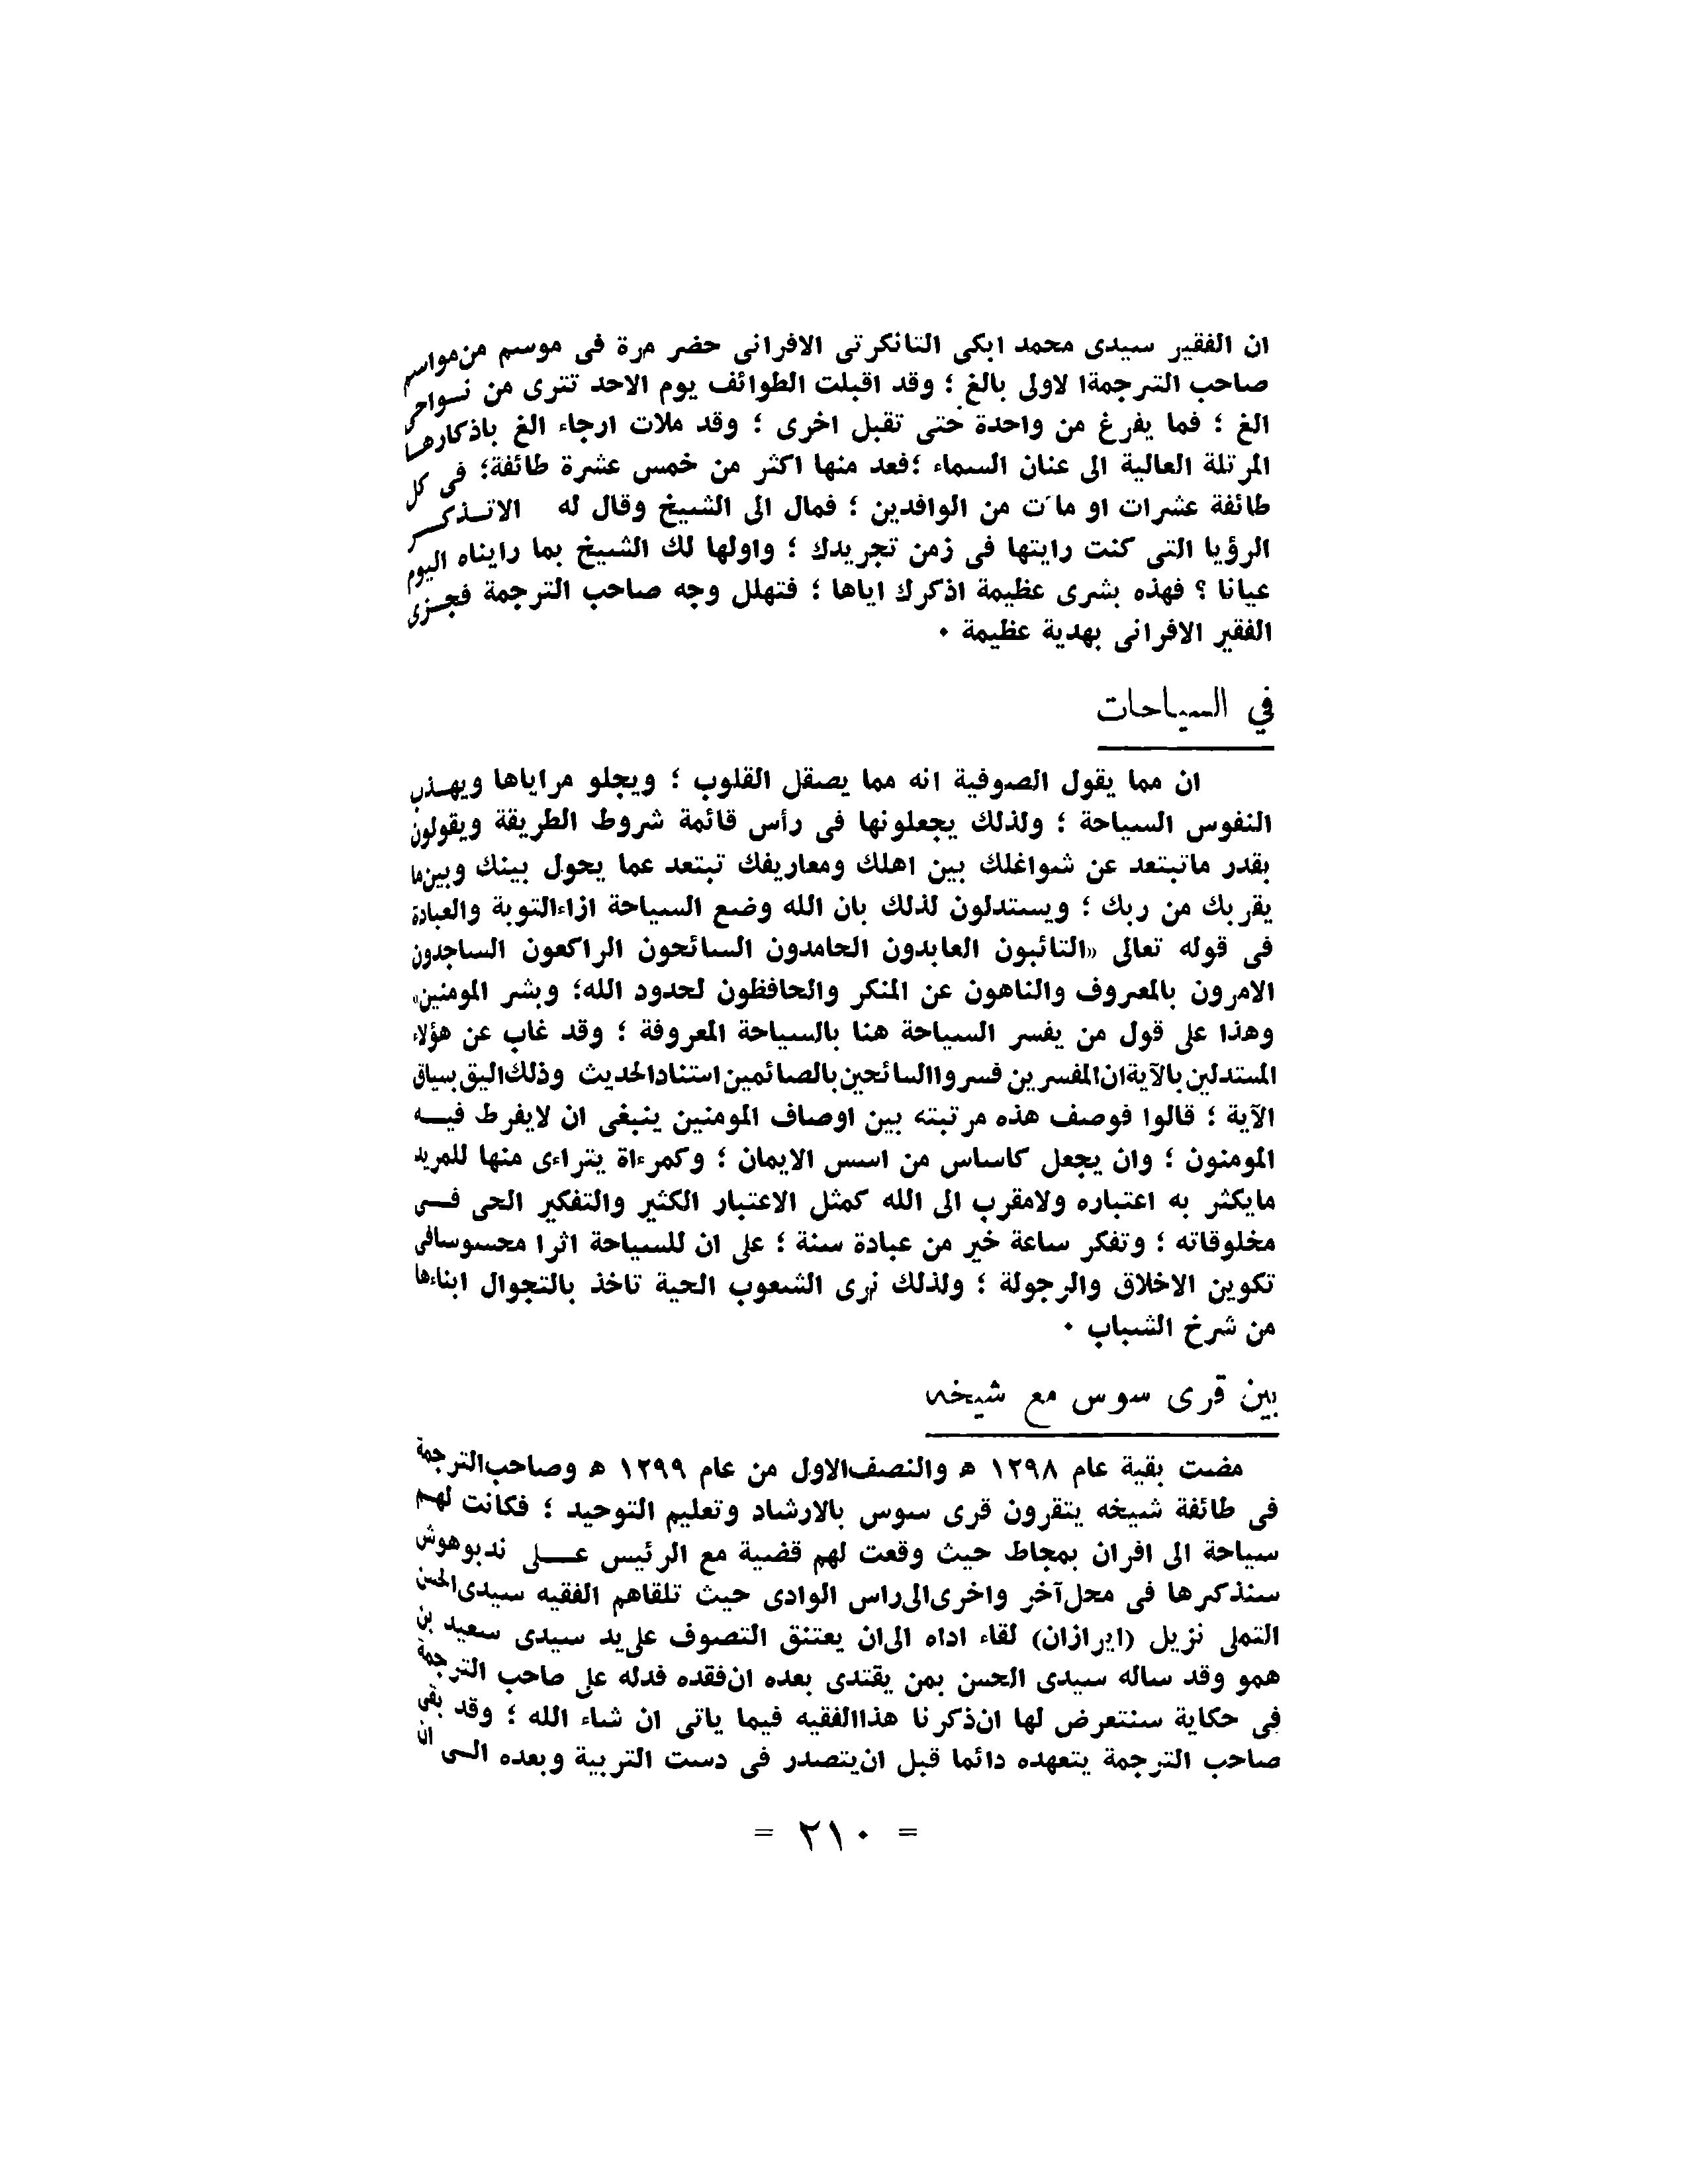 ان الفقير سيدى محمد ابكى التانكرتى الافرانى حضر مرة فى موسم من مواسم
صاحب الترجمةا لاولى بالغ ؛ وقد اقبلت الطوائف يوم الاحد تترى من نـواحى
الغ ؛ فما يفرغ من واحدة حتى تقبل اخرى ؛ وقد ملات ارجاء الغ باذكارهـا
المرتلة العالية الى عنان السماء ؛فعد منها اكثر من خمس عشرة طائفة؛ فى كل
طائفة عشرات او مآت من الوافدين ؛ فمال الى الشيخ وقال له الاتـذكـر
الرؤيا التى كنت رايتها فى زمن تجريدك ؛ واولها لك الشيخ بما رايناه اليوم
عيانا ؟ فهذه بشرى عظيمة اذكرك اياها ؛ فتهلل وجه صاحب الترجمة فجـزى
الفقير الافرانى بهدية عظيمة ٠
في السياحات
ان مما يقول الصوفية انه مما يصقل القلوب ؛ ويجلو مراياها ويهـذب
النفوس السياحة ؛ ولذلك يجعلونها فى رأس قائمة شروط الطريقة ويقولون
بقدر ماتبتعد عن شواغلك بين اهلك ومعاريفك تبتعد عما يحول بينك وبين ما
يقربك من ربك ؛ ويستدلون لذلك بان الله وضع السياحة ازاءالتوبة والعبادة
فى قوله تعالى «التائبون العابدون الحامدون السائحون الراكعون الساجدون
الامرون بالمعروف والناهون عن المنكر والحافظون لحدود الله؛ وبشر المومنين»
وهذا على قول من يفسر السياحة هنا بالسياحة المعروفة ؛ وقد غاب عن هؤلاء
المستدلين بالآية ان المفسرين فسروا السائحين بالصائمين استنادا لحديث وذلك اليق بسياق
الآية ؛ قالوا فوصف هذه مرتبته بين اوصاف المومنين ينبغى ان لايفرط فيـــه
المومنون ؛ وان يجعل كاساس من اسس الايمان ؛ وكمرءاة يتراءى منها للمريد
مايكثر به اعتباره ولامقرب الى الله كمثل الاعتبار الكثير والتفكير الحى فـــى
مخلوقاته ؛ وتفكر ساعة خير من عبادة سنة ؛ على ان للسياحة اثرا محسوسا فى
تكوين الاخلاق والرجولة ؛ ولذلك نرى الشعوب الحية تاخذ بالتجوال ابناءها
من شرخ الشباب ٠
بين قرى سوس مع شيخه
مضت بقية عام ١٢٩٨ ه والنصف الاول من عام ١٢٩٩ ه وصاحب الترجمة
فى طائفة شيخه يتقرون قرى سوس بالارشاد وتعليم التوحيد ؛ فكانت لهـم
سياحة الى افران بمجاط حيث وقعت لهم قضية مع الرئيس عـــلى ندبوهوش
سنذكرها فى محل آخر واخرى الى راس الوادى حيث تلقاهم الفقيه سيدى الحسن
التملى نزيل (ايرازان) لقاء اداه الى ان يعتنق التصوف على يد سيدى سعيد بن
همو وقد ساله سيدى الحسن بمن يقتدى بعده ان فقده فدله على صاحب الترجمة
فى حكاية سنتعرض لها ان ذكرنا هذا الفقيه فيما ياتى ان شاء الله ؛ وقد بقى
صاحب الترجمة يتعهده دائما قبل ان يتصدر فى دست التربية وبعده الــى ان
= ٢١٠ =